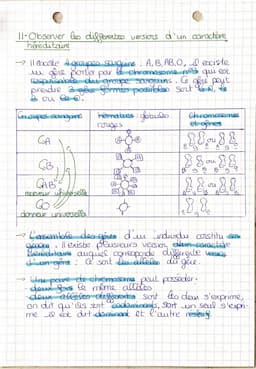 II- Observer les différentes versions d'un caractère
héréditaire
→ Il existe 4 groupes sanguins : A, B, AB, O, il existe
un gène porté par le chromosome n°9 qui est
responsable du groupe sanguin. Ce gène peut
prendre 3 formes possibles soit le A, le
B ou le O.
Groupes sanguins
hématies globules
rouges
Chromosomes
et gènes
GA
ou
GB
ou
GAB
receveur universelle
GO
donneur universelle
→ L'ensemble des gènes d'un individu constitu son
génome. Il existe plusieurs version d'un caractère
héréditaire auquel corresponde différente version
d'un gène : ce sont les allèles du gène.
→ Une paire de chromosome peut posséder :
- deux fois le même allèles
- deux allèles différentes soit les deux s'exprime,
on dit qu'ils sont codominants, soit un seul s'expri-
me il est dit dominant et l'autre récessif.